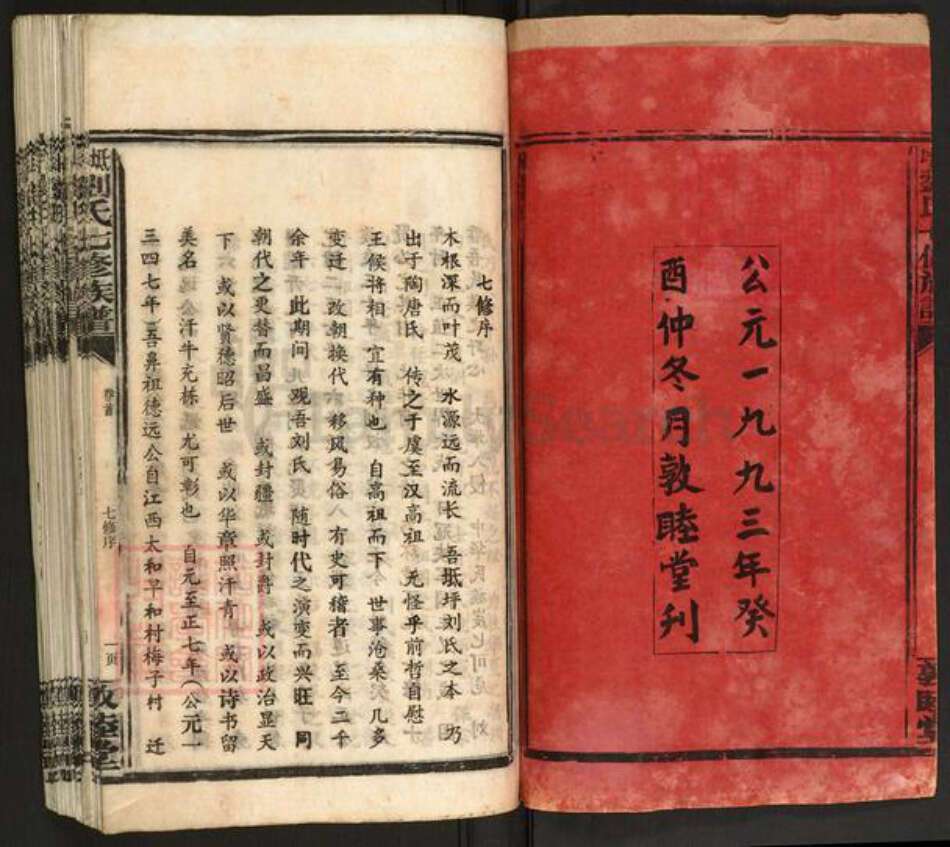 公元一九九三年癸
酉仲冬月敦睦堂刊
七修序
木根深而叶茂 水源远而流长 吾坻坪刘氏之本 乃
出于陶唐氏 传之于虞至汉高祖 无怪乎前哲自慰
王侯将相 宜有种也 自高祖而下 世事沧桑 几多
变迁 改朝换代 移风易俗 有史可稽者 至今二千
余年 此期间 观吾刘氏 随时代之演变而兴旺 同
朝代之更替而昌盛 或封疆 或封爵 或以政治显天
下 或以贤德昭后世 或以华章照汗青 或以诗书留
美名 汗牛充栋 尤可彰也 自元至正七年（公元一
三四七年 吾鼻祖德远公自江西太和早和村梅子村 迁
坻刘氏七修族谱
卷首
七修序
一页
敦睦堂